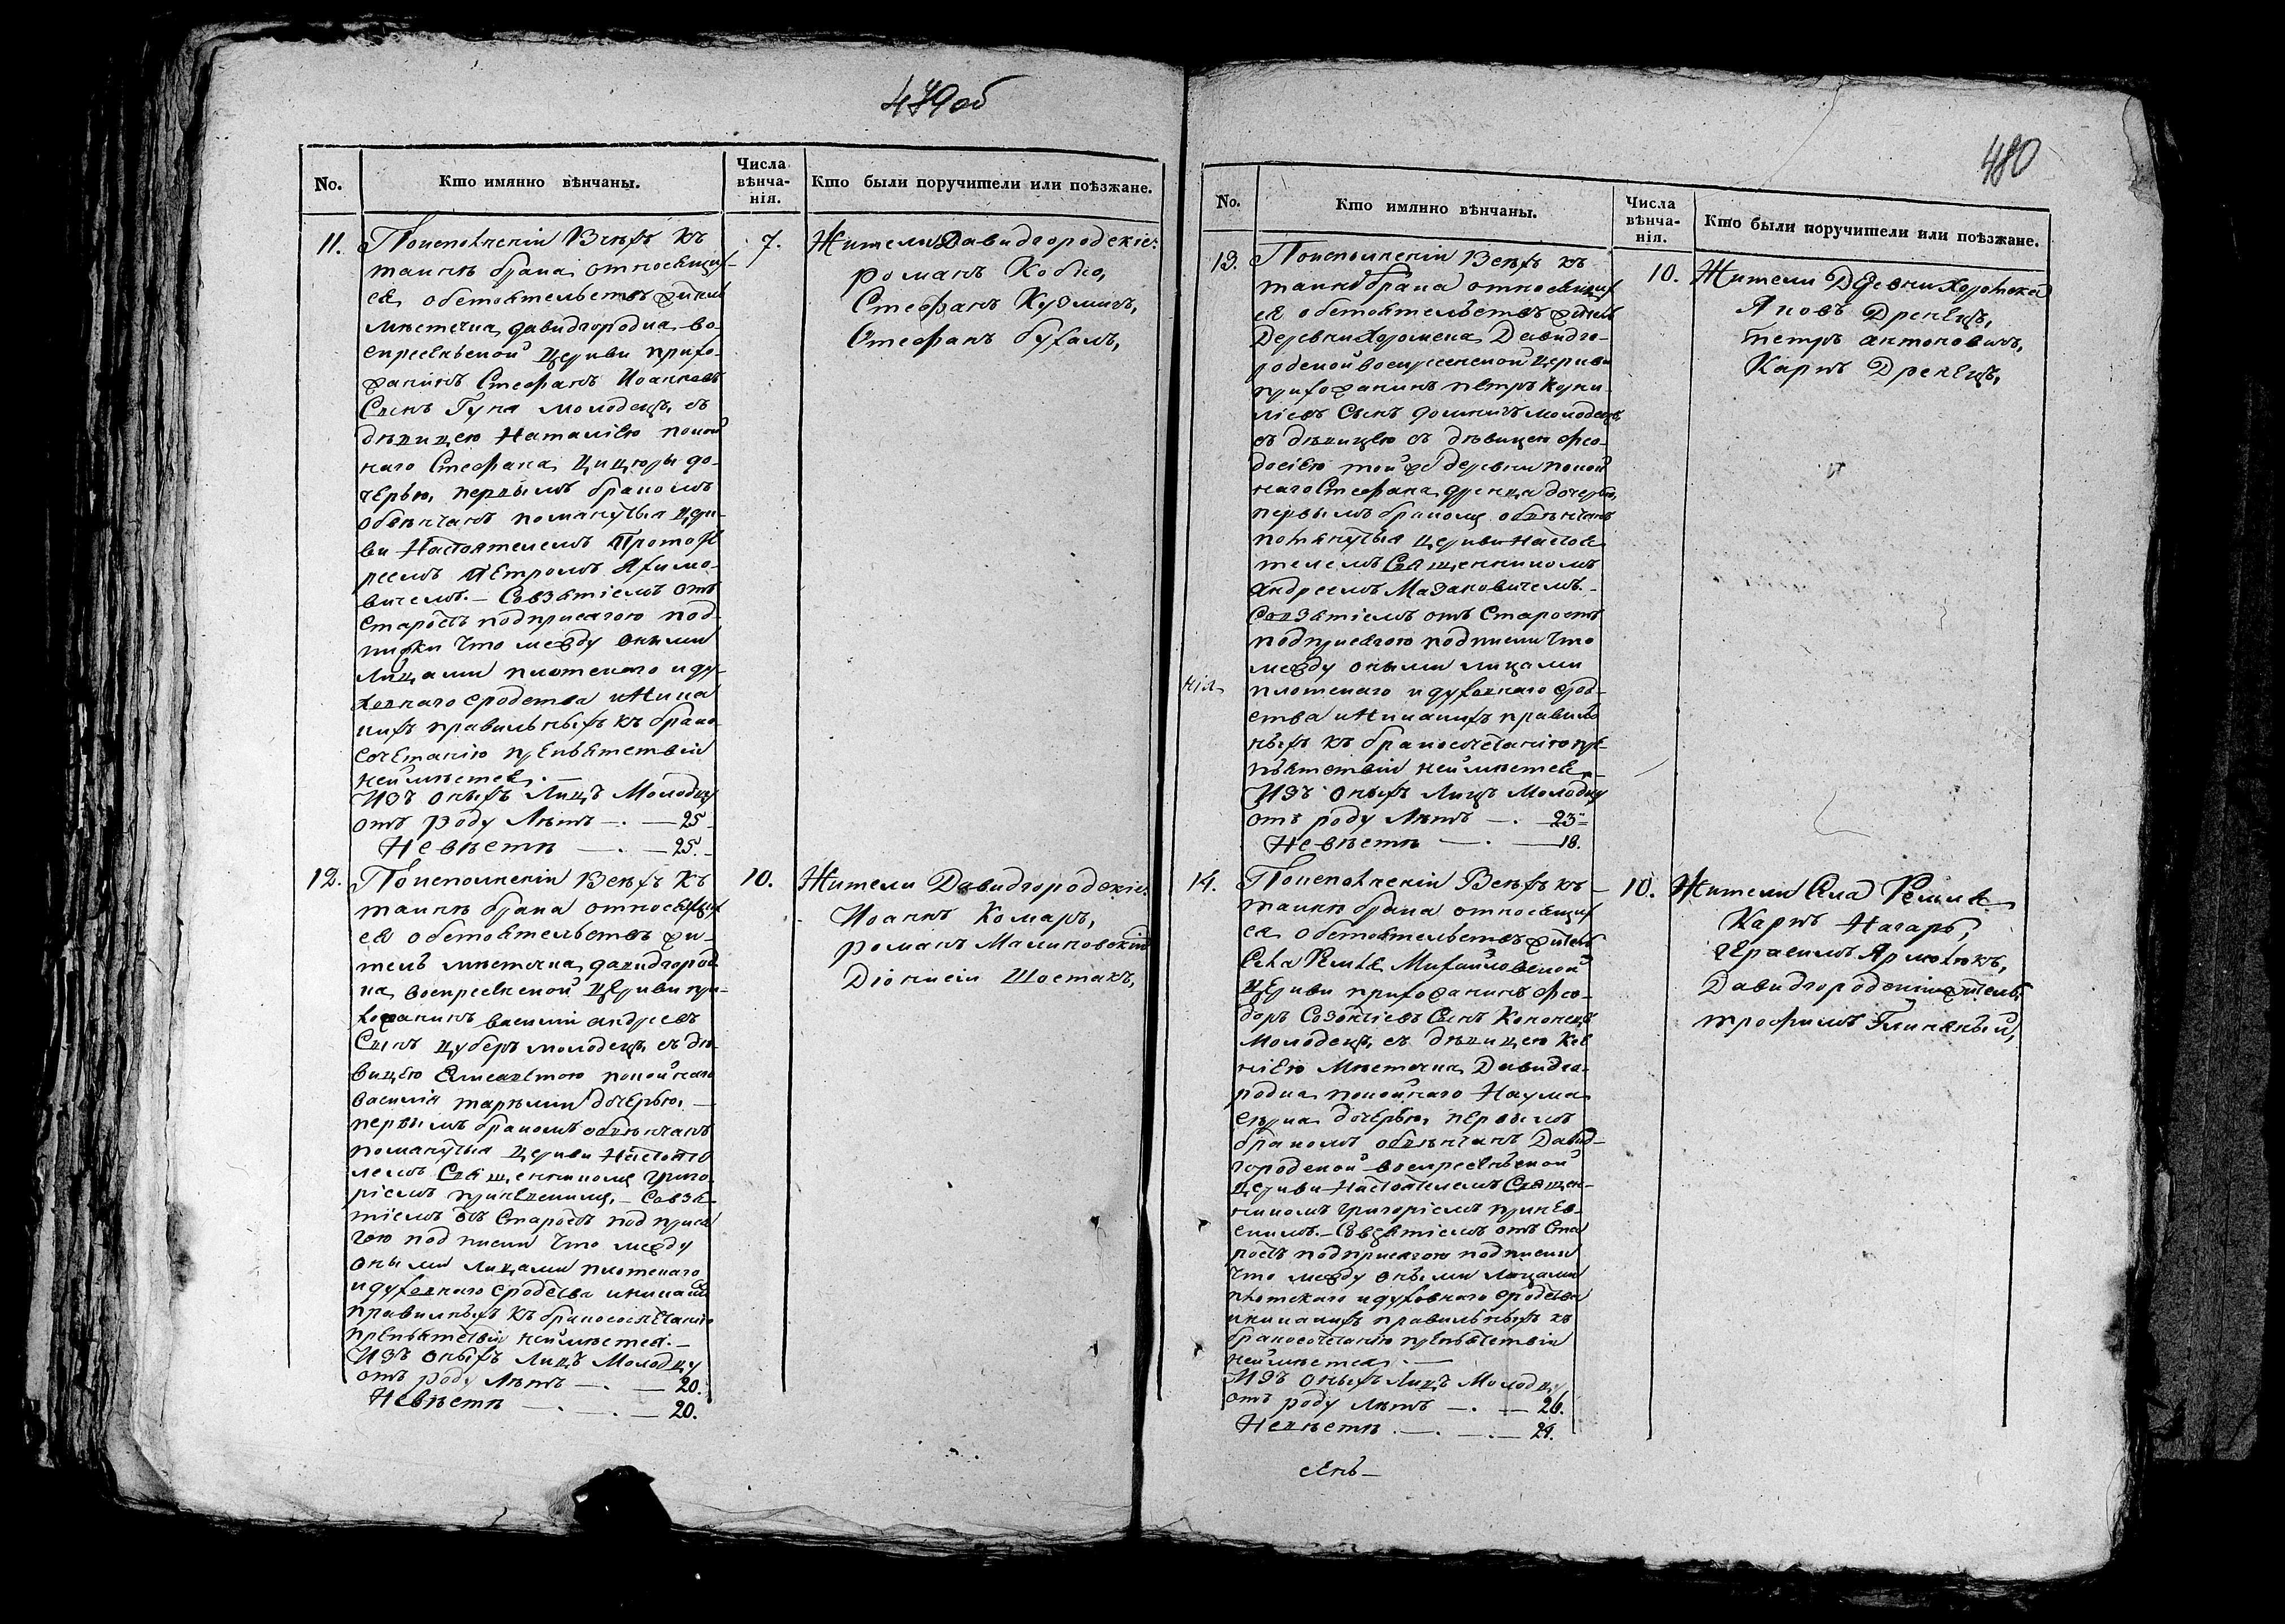 479об
No.
Кто имянно вѣнчаны.
Числа
вѣнча-
нія.
Кто были поручители или поѣзжане.
11.
Поисполненіи Всѣхъ къ
таинѣ брака относящих
ся обстоятельствъ житель
мѣстечка давидгородка во-
скресенской Церкви прихо-
жанинъ Стефанъ Иоанновъ
Сынъ молодецъ, съ
дѣвицею Наталіею покой
наго Стефана Цицюры до-
черью, первымъ бракомъ
обвѣнчанъ помянутыя церк-
ви Настоятелемъ Протоіе
реемъ Петромъ
вичемъ. — Совзятіемъ отъ
Старостъ подприсягою под-
писки Что между оными
Лицами плотскаго и ду-
ховнаго сродства и Ника
кихъ правильныхъ къ брако
сочетанію препятствій
неимѣется. —
Изъ оныхъ Лицъ Молодцу
отъ роду Лѣтъ —. — 25
Невѣстѣ —. — 25.
7.
Жители Давидгородскіе:
романъ
Стефанъ Кузмичъ,
Стефанъ
12.
Поисполненіи Всѣхъ къ
таинѣ брака относящих
ся обстоятельствъ жи-
тель мѣстечка давидгород
ка, воскресенской Церкви при-
хожанинъ василій андреевъ
Сынъ Цуберъ молодецъ, съ дѣ-
вицею Елисаветою покойнаго
василія дочерью,
первымъ бракомъ обвѣнчанъ
помянутыя Церкви Настояте
лемъ Священникомъ Григо-
ріемъ — Совзя-
тіемъ отъ Старостъ под прися
гою подписки Что между
оными лицами плотскаго
и духовнаго сродства иникаких
правилныхъ къ бракосочетанію
препятствій неимѣется. —
Изъ оныхъ Лицъ Молодцу
отъ роду Лѣтъ —. — 20.
Невѣстѣ —. — 20.
10.
Жители Давидгородскіе:
Иоаннъ Комаръ,
романъ Малиновскій
Діонисій Шостакъ,
480
No.
Кто имянно вѣнчаны.
Числа
вѣнча-
нія.
Кто были поручители или поѣзжане.
13.
Поисполненіи Всѣхъ къ
таинѣ брака относящих
ся обстоятельствъ житель
Деревни Хоромска Давидго-
родской воскресенской церкви
прихожанинъ петръ
сынъ молодецъ
съ дѣвицею съ дѣвицею Фео-
досіею той же деревни покой
наго Стефана дренца дочерью,
первымъ бракомъ обвѣнчанъ
помянутыя церкви Настоя
телемъ Священникомъ
Андреемъ Мазановичемъ. —
Совзятіемъ отъ Старостъ
подприсягою подписки Что
между оными лицами
плотскаго и духовнаго срод-
ства иНикакихъ правиль
ныхъ къ бракосочетанію пре
пятствій неимѣется. —
Изъ оныхъ Лицъ Молодцу
отъ роду Лѣтъ —. — 23
Невѣстѣ —. — 18.
нія
10.
Жители Деревни Хоромска
Яковъ Дренецъ,
петръ антоновичъ,
Карпъ Дренецъ,
14.
Поисполненіи Всѣхъ къ
таинѣ брака относящих
ся обстоятельствъ житель
Села Ремля Михайловской
Церкви прихожанинъ Фео-
доръ Созонтіевъ Сынъ Кононецъ
Молодецъ, съ дѣвицею Ксе
ніею Мѣстечка Давидго-
родка покойнаго Наума
дочерью, первымъ
бракомъ обвѣнчанъ Давид-
городской воскресенской
Церкви Настоятелемъ Священ-
никомъ Григоріемъ
Совзятіемъ отъ Ста
ростъ подприсягою подписки
Что между оными лицами
плотскаго идуховнаго сродства
иникакихъ правильныхъ къ
бракосочетанію препятствій
неимѣется. —
Изъ оныхъ Лицъ Молодцу
отъ роду Лѣтъ —. — 26.
Невѣстѣ —. — 21.
10.
Жители Села Ремля
Карпъ Нагаръ,
герасимъ Ярмолюкъ,
Давидгородскій житель
трофимъ Глиняный,